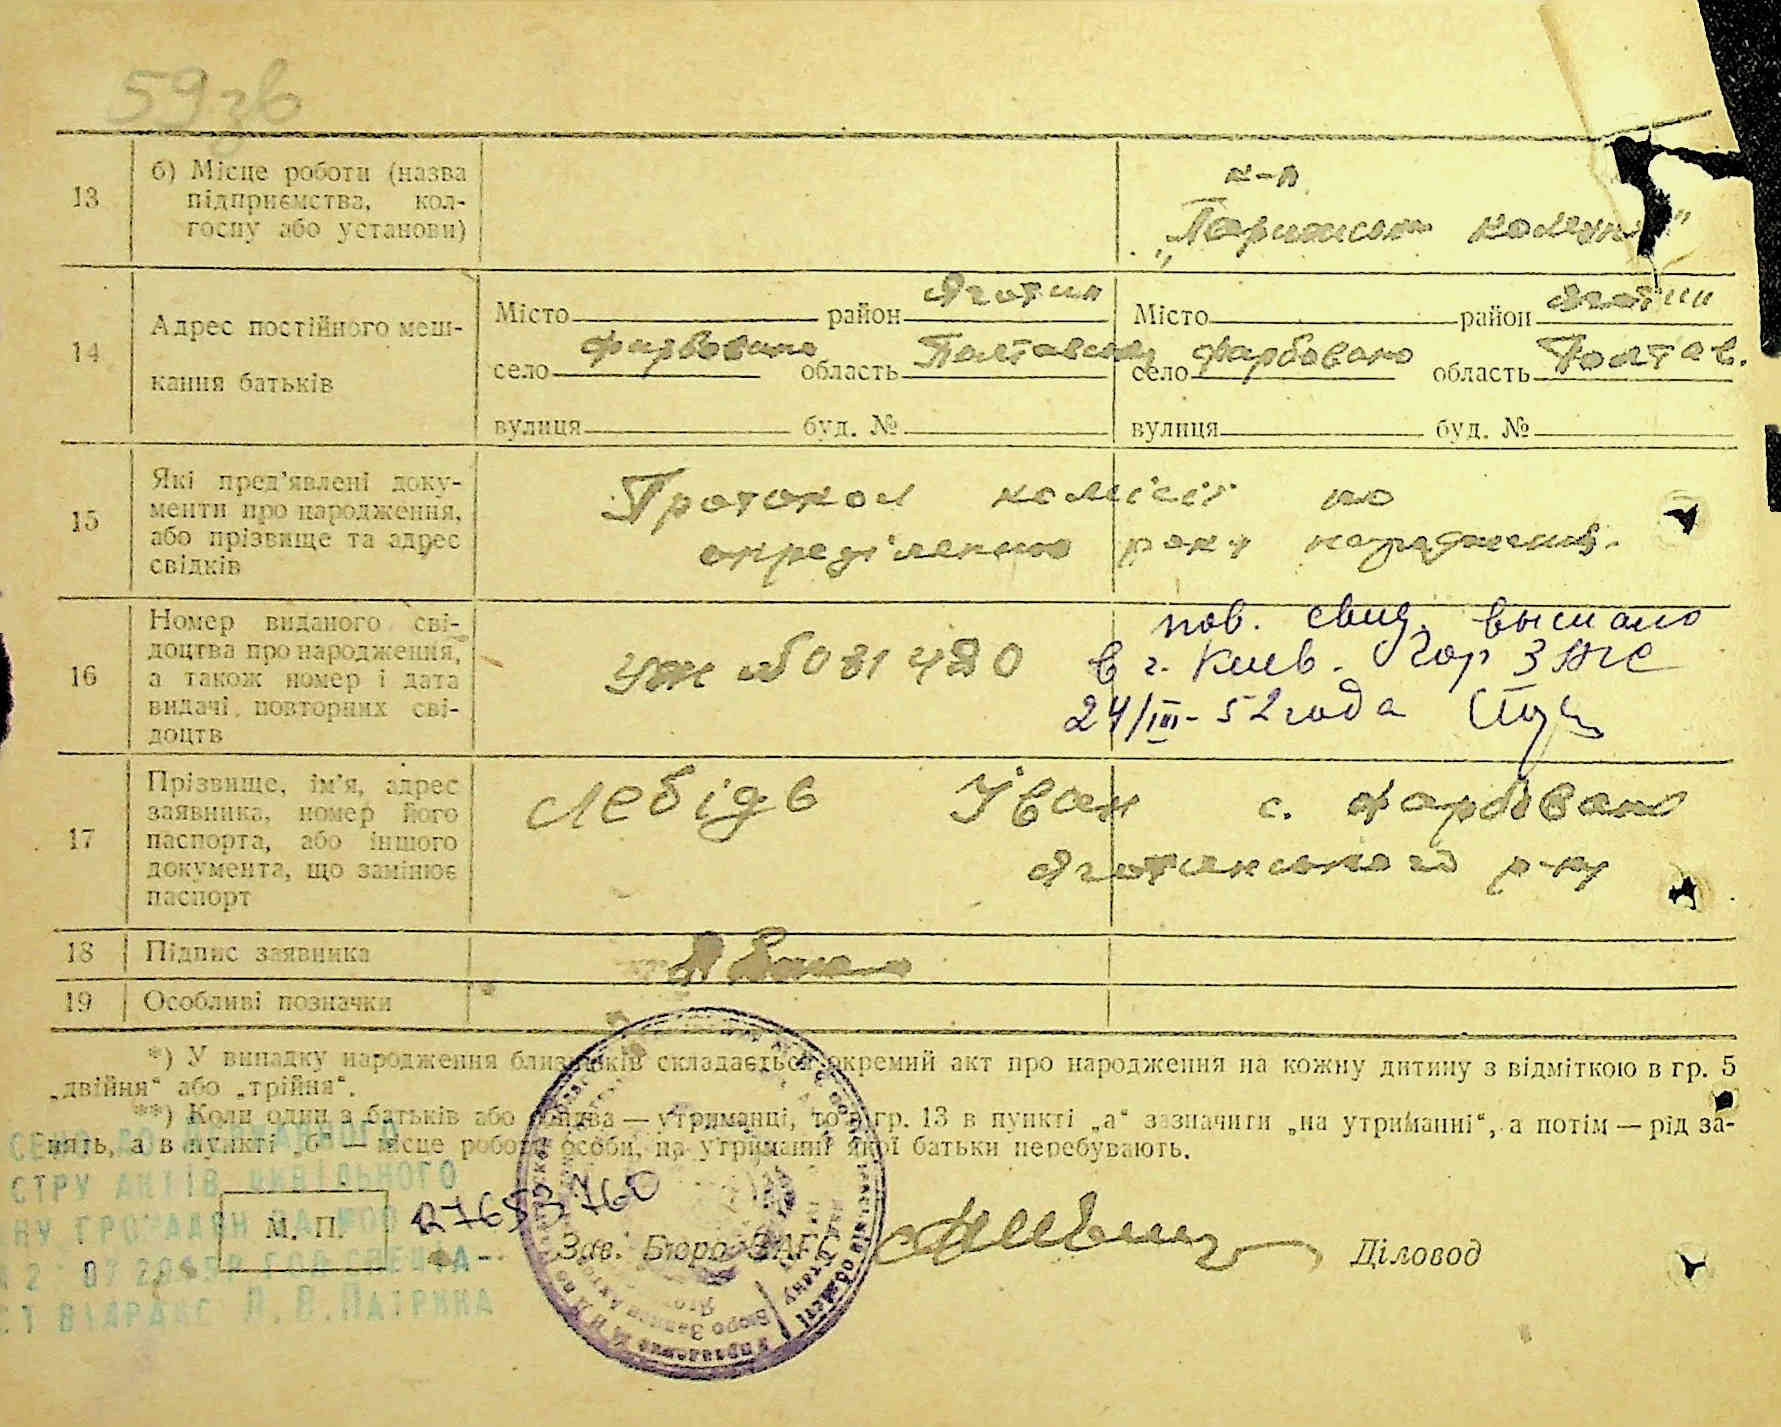 59зв
13
б) Місце роботи (назва
підприємства, кол-
госпу або установи)
к-п
„Паризьск комуни"
14
Адрес постійного меш-
кання батьків
Місто район Яготин
село Фарбовано область Полтавська
вулиця буд. №
Місто район Яготин
село Фарбовано область Полтав.
вулиця буд. №
15
Які пред'явлені доку-
менти про народження,
або прізвище та адрес
свідків
Протокол комісії по
опреділенню року народження.
16
Номер виданого сві-
доцтва про народження,
а також номер і дата
видачі повторних сві-
доцтв
УЖ №081480
пов. свид. выслано
в г. Киев. Гор ЗАГС
24/III-52 года
17
Прізвище, ім'я, адрес
заявника, номер його
паспорта, або іншого
документа, що замінює
паспорт
Лебідь Іван с. Фарбовано
Яготинського р-ну
18
Підпис заявника
19
Особливі позначки
*) У випадку народження близнюків складається окремий акт про народження на кожну дитину з відміткою в гр. 5
„двійня“ або „трійня“.
**) Коли один з батьків або обидва — утриманці, то в гр. 13 в пункті „а“ зазначити „на утриманні“, а потім — рід за-
нять, а в пункті „б“ — місце роботи особи, на утриманні якої батьки перебувають.
СТРУ АКТІВ ЦИВІЛЬНОГО
НУ ГРОМАДЯН
М. П.
27653760
Зав. Бюро ЗАГС
Діловод
Л. В. ПАТРИНА